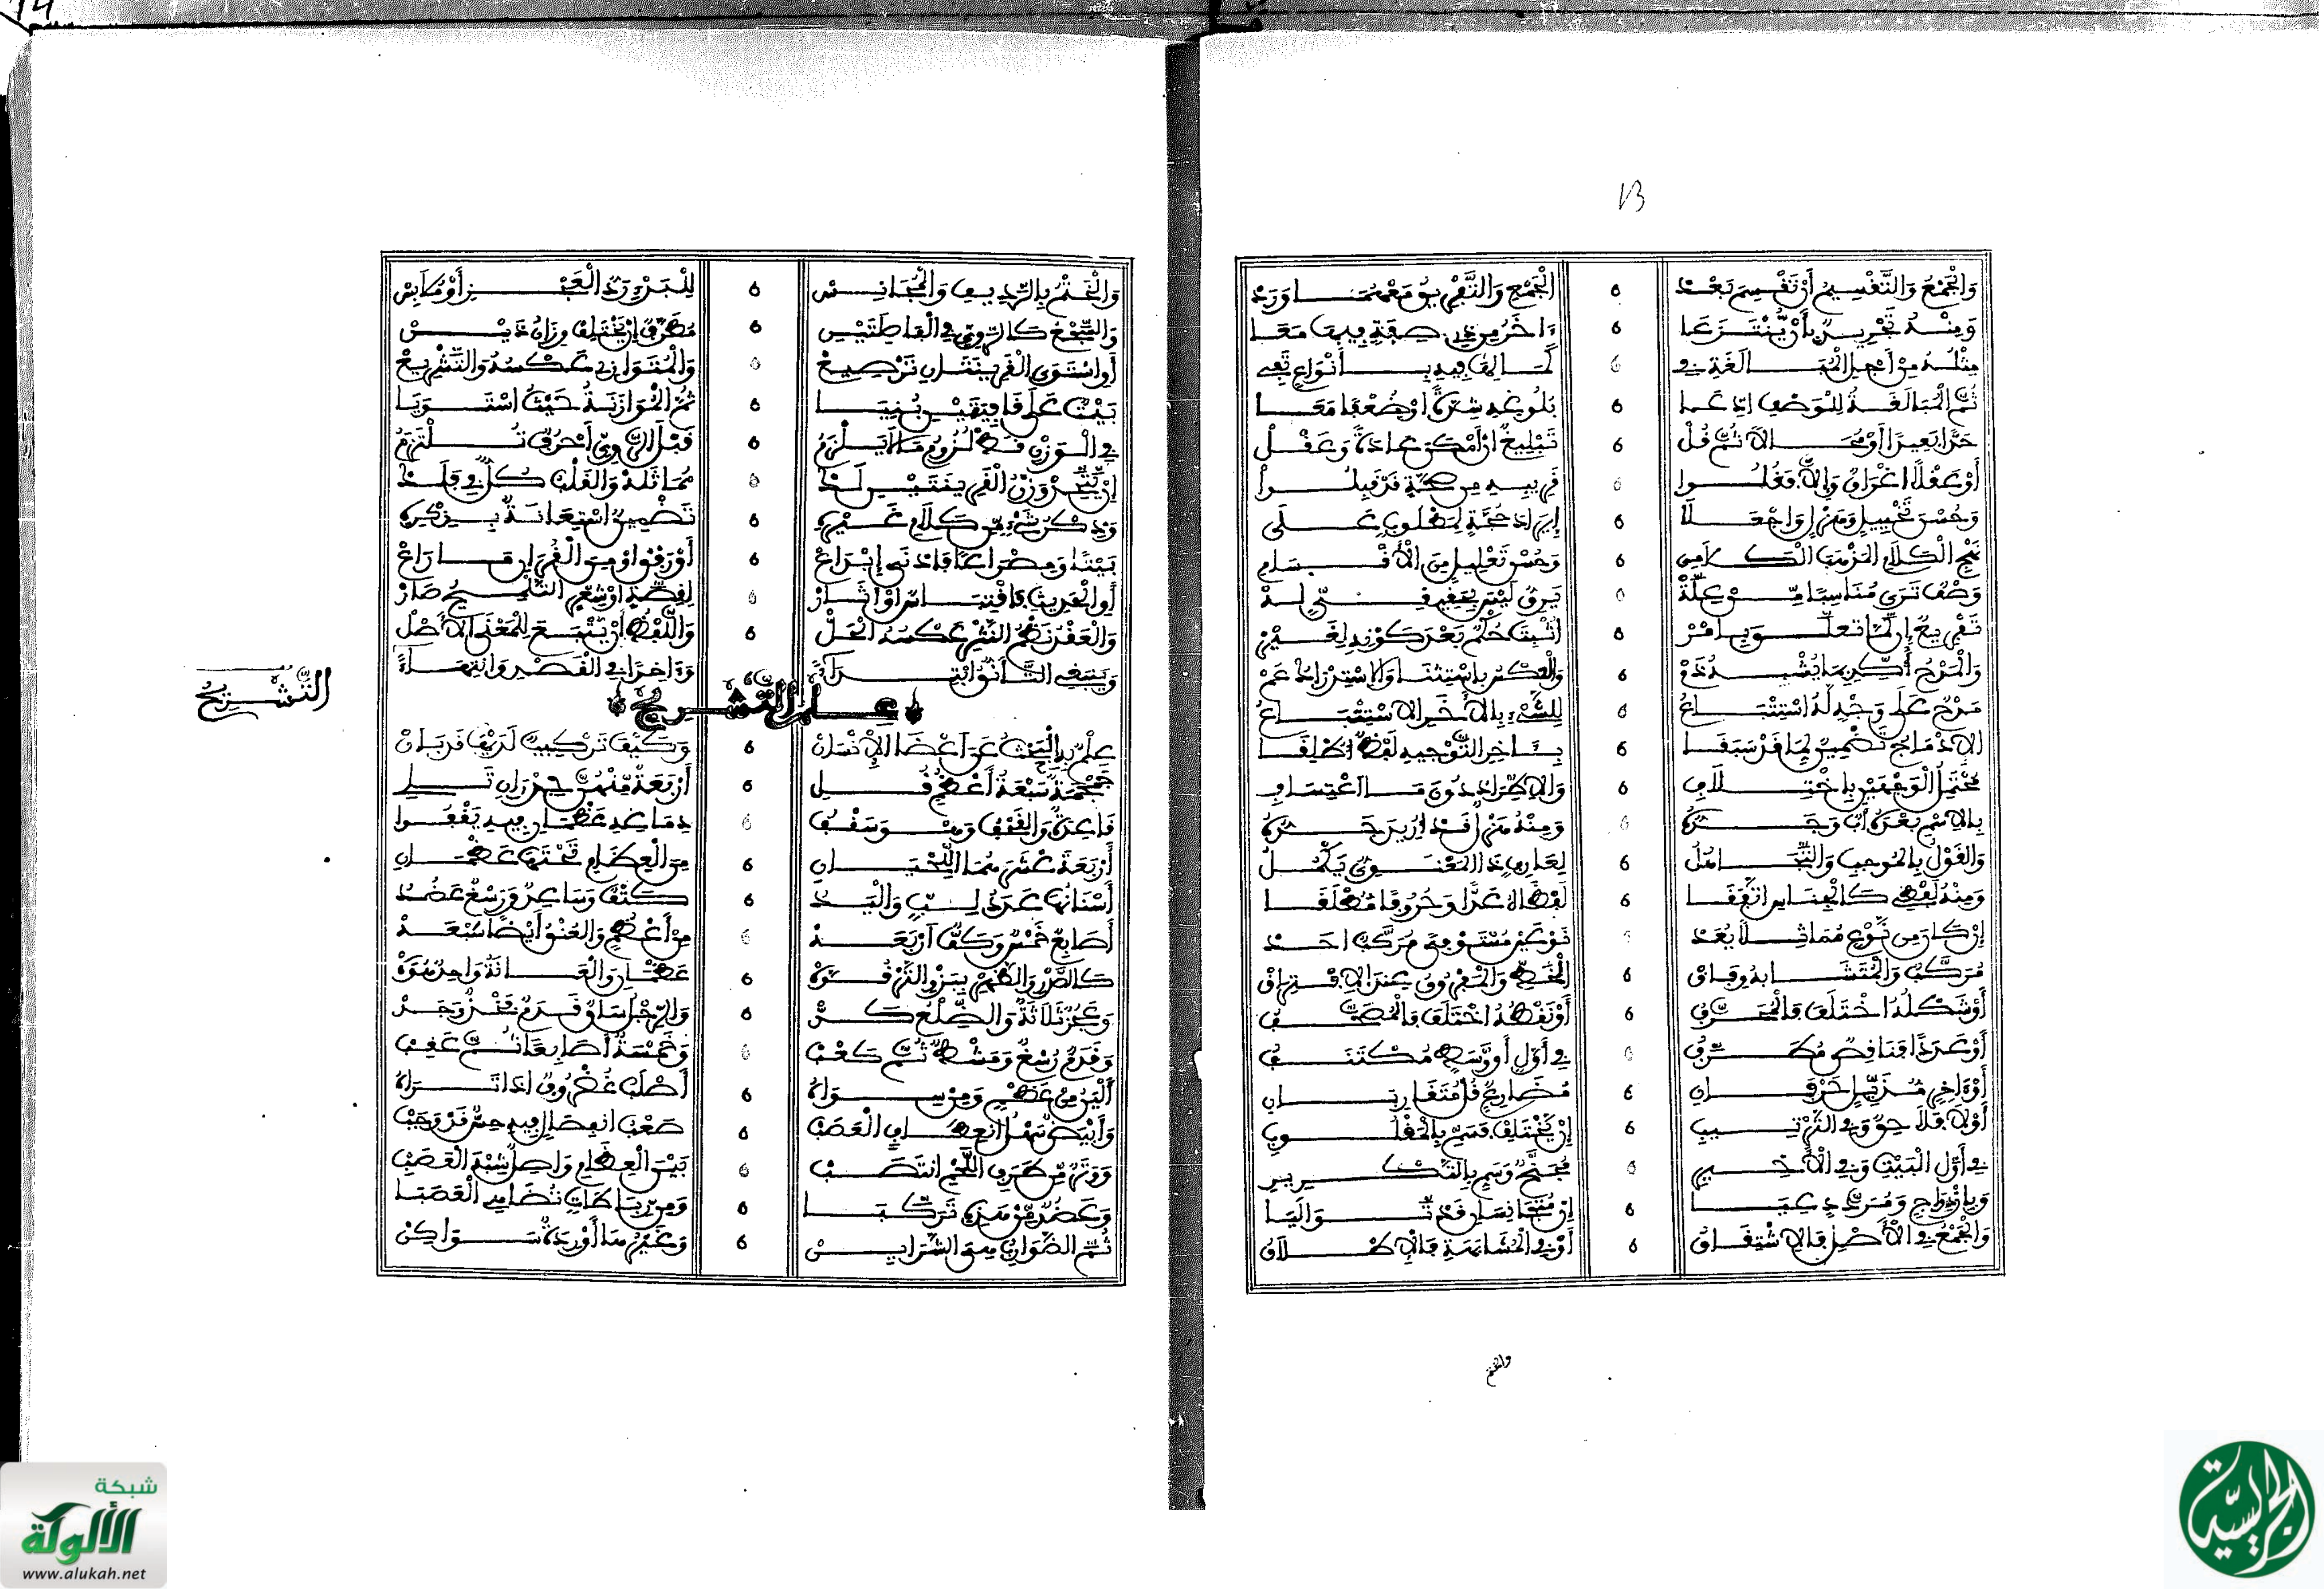 13
وَالْجَمْعُ وَالتَّقْسِيمُ أَنْ تَقْسِمَ بَعْدْ الْجَمْعِ وَالتَّفْرِيقُ مَعْهُمَا وَرَدْ
وَمِنْهُ تَجْرِيدٌ بِأَنْ يُنْتَزَعَا ءَاخَرُ مِنْ ذِي صِفَةٍ فِيهَا مَعَا
مِثْلُهُ مِنْ أَجْلِ الْمُبَالَغَةِ فِي كَمَالِهَا فِيهِ بِأَنْوَاعٍ تَفِي
ثُمَّ الْمُبَالَغَةُ لِلْوَصْفِ ادِّعَا بُلُوغِهِ شِدَّةً أَوْ ضُعْفًا مَعَا
حَدًّا بَعِيدًا أَوْ مُحَالًا ثُمَّ قُلْ تَبْلِيغٌ إِنْ أَمْكَنَ عَادَةً وَعَقْلْ
أَوْ عَقْلًا إِغْرَاقٌ وَإِلَّا فَغُلُوا قَرِيبِهِ مِنْ صِحَّةٍ قَدْ قَبِلُوا
وَحُسْنِ تَخْيِيلٍ وَهَزْلٍ وَاجْعَلَا إِيرَادَ حُجَّةٍ لِمَطْلُوبٍ عَلَى
نَهْجِ الْكَلَامِ الْمَذْهَبَ الْكَلَامِي وَحُسْنُ تَعْلِيلٍ مِنَ الْأَقْسَامِ
وَصْفٌ تَرَى مُنَاسِبًا مِنْ عِلَّةْ بِدِقَّ لَيْسَ بِحَقِيقِيٍّ لَهْ
تَفْرِيعٌ إِنْ لِمَا تَعَلَّقَ بِأَمْرْ أَثْبِتَ حُكْمٌ بَعْدَ كَوْنِهِ لِغَيْرْ
وَالْمَدْحُ أَكِّدْ بِمَا يُشْبِهُ ذَمْ وَالْعَكْسُ بِاسْتِثْنَا وَالِاسْتِدْرَاكُ عَمْ
مَدْحٌ عَلَى وَجْهٍ لَهُ اسْتِتْبَاعُ لِلشَّيْءِ بِالْآخَرِ الِاسْتِتْبَاعُ
الِادْمَاجُ تَضْمِينٌ لِمَا قَدْ سَبَقَا بِئَاخَرِ التَّوْجِيهِ لَفْظٌ أُطْلِقَا
مُحْتَمِلُ الْوَجْهَيْنِ بِاخْتِلَافِ وَالِاطِّرَادُ دُونَ مَا اعْتِسَافِ
بِالِاسْمِ بَعْدَهُ أَبٌ وَجَدُّهُ وَمِنْهُ هَزْلٌ قَدْ أُرِيدَ جِدُّهُ
وَالْقَوْلُ بِالْمُوجَبِ وَالتَّجَاهُلُ لِعَارِفٍ ذَا الْمَعْنَوِيُّ يَكْمُلُ
وَمِنْهُ لَفْظِيٌّ كَالْجِنَاسِ اتَّفَقَا لَفْظًا لَا عَدًّا وَحُرُوفًا مُطْلَقَا
إِنْ كَانَ مِنْ نَوْعٍ مُمَاثِلًا يُعَدْ نَوْعَيْنِ مُسْتَوْفًى مُرَكَّبٌ أَحَدْ
مُرَكَّبٌ وَالْمُتَشَابِهُ وِفَاقْ الْخَطِّ وَالْمَفْرُوقُ عِنْدَ الِافْتِرَاقْ
أَوْ شَكْلُهُ اخْتَلَفَ فَالْمُحَرَّفُ أَوْ نَقْطُهُ اخْتَلَفَ فَالْمُصَحَّفُ
أَوْ عَدَدًا فَنَاقِصٌ مُطَرَّفُ فِي أَوَّلٍ أَوْ وَسَطٍ مُكْتَنَفُ
أَوْ ءَاخِرٍ مُذَيَّلٌ حَرْفَانِ مُضَارِعٌ قُلْ مُتَقَارِبَانِ
أَوْ لَا فَلَاحِقٌ وَفِي التَّرْتِيبِ إِنْ يَخْتَلِفْ فَسَمِّ بِالْمَقْلُوبِ
فِي أَوَّلِ الْبَيْتِ وَفِي الْأَخِيرِ مُجَنَّحٌ وَسَمِّ بِالتَّكْرِيرِ
وَبِازْدِوَاجٍ وَمُرَدَّدٍ عِيَا إِنْ مُتَجَانِسَانِ قَدْ تَوَالَيَا
وَالْجَمْعُ فِي الْأَصْلِ فَالِاشْتِقَاقُ أَوْ فِي الْمُشَابَهَةِ فَالْإِطْلَاقُ
والختم
14
وَالْخَتْمُ بِالرَّدِيفِ وَالْمُجَانِسْ لِلْبَدْءِ رَدُّ الْعَجُزِ أَوْ مُلَابِسْ
وَالسَّجْعُ كَالرَّوِيِّ فِي الْفَاصِلَتَيْنْ مُطَرَّفٌ إِنْ يَخْتَلِفْ وَزْنُ ذَيْنْ
أَوِ اسْتَوَى الْقَرِينَتَانِ تَرْصِيعْ وَالْمُتَوَازِي عَكْسُهُ وَالتَّشْرِيعْ
بَيْتٌ عَلَى قَافِيَتَيْنِ بُنِيَا ثُمَّ الْمُوَازَنَةُ حَيْثُ اسْتَوَيَا
فِي الْوَزْنِ قَطْ لُزُومُ مَا لَا يَلْزَمُ قَبْلَ الرَّوِيِّ أَحْرُفٌ تُلْتَزَمُ
إِنْ يَتَّحِدْ وَزْنُ الْقَرِينَتَيْنِ لَهْ مُمَاثَلَهْ وَالْقَلْبُ كُلٌّ فِي فَلَكْ
وَذِكْرُ شَيْءٍ مِنْ كَلَامِ غَيْرِهِ تَضْمِينٌ اسْتِعَانَةٌ بِذِكْرِهِ
بَيْتًا وَمِصْرَاعًا فَأَدْنَى إِيدَاعْ أَوْ رَفْوٌ أَوْ مِنَ الْقُرْآنِ قَدْ رَاعْ
أَوِ الْحَدِيثِ فَاقْتِبَاسٌ أَوْ أَشَارْ لِقِصَّةٍ أَوْ شِعْرٍ التَّلْمِيحُ صَارْ
وَالْعَقْدُ نَظْمُ النَّثْرِ عَكْسُهُ الْحَلْ وَاللَّفْظُ أَنْ يُتْبَعَ لِلْمَعْنَى الْأَصْلْ
وَيَنْبَغِي التَّأَنُّقُ ابْتِدَاءً وَءَاخِرًا فِي الْقَصْدِ وَانْتِهَاءً
التَّشْرِيحُ
عِلْمُ التَّشْرِيحِ
عِلْمٌ بِهِ الْبَحْثُ عَنَ اعْضَا الْإِنْسَانْ وَكَيْفَ تَرْكِيبٌ لَدَيْهَا قَدْ بَانْ
جُمْجُمَةٌ سَبْعَةُ أَعْظُمٍ قُلِ أَرْبَعَةٌ مِنْهُنَّ جِدْرَانٌ تَلِي
قَاعِدَةٌ وَالْقِحْفُ وَهْوَ سَقْفُ دِمَاغِهِ عَظْمَانِ فِيهِ يَقْفُوا
أَرْبَعَةَ عَشَرَ هُمَا اللَّحْيَانِ مِنَ الْعِظَامِ تَحْتَهَا عَظْمَانِ
أَسْنَانُهَا عَدَدُ لِبٍّ وَالْيَدُ كَتْفٌ وَسَاعِدٌ وَرُسْغٌ عَضُدُ
أَصَابِعٌ خَمْسٌ وَكَفٌّ أَرْبَعَهْ مِنْ أَعْظُمٍ وَالْعُنْقُ أَيْضًا سَبْعَهْ
كَالصَّدْرِ وَالظَّهْرِ بِيَزٍّ وَالتَّرْقُوَهْ عَظْمَانِ وَالْعَانَةُ وَاحِدٌ
وَعَجُزٌ ثَلَاثَةٌ وَالضِّلْعُ كَدْ وَالرِّجْلُ سَاقٌ قَدَمٌ فَخْذٌ وَجَدْ
وَقَدَمٌ رُسْغٌ وَمَشْطٌ ثُمَّ كَعْبْ وَخَمْسَةٌ أَصَابِعًا ثُمَّ عَقِبْ
أَلْيَنُ مِنْ عَظْمٍ وَمِنْ سِوَاهُ أَصْلَبُ غُضْرُوفٌ إِذَا تَرَاهُ
وَأَبْيَضٌ سَهْلُ انْعِطَافٍ الْعَصَبْ صَعْبُ انْفِصَالٍ فِيهِ حِسٌّ قَدْ وَجَبْ
وَوَتَرٌ مِنْ طَرَفِ اللَّحْمِ انْتَصَبْ بَيْنَ الْعِظَامِ وَاصِلٌ شِبْهُ الْعَصَبْ
وَعَضَلٌ مِنْ هَذِهِ تَرَكَّبَا وَمِنْ رِبَاطَاتٍ تُضَاهِي الْعَصَبَا
ثُمَّ الضَّوَارِبُ مِنَ الشَّرَايِينْ وَغَيْرُ مَا أَوْرِدَةٌ سَوَاكِنْ
شبكة
الألوكة
www.alukah.net